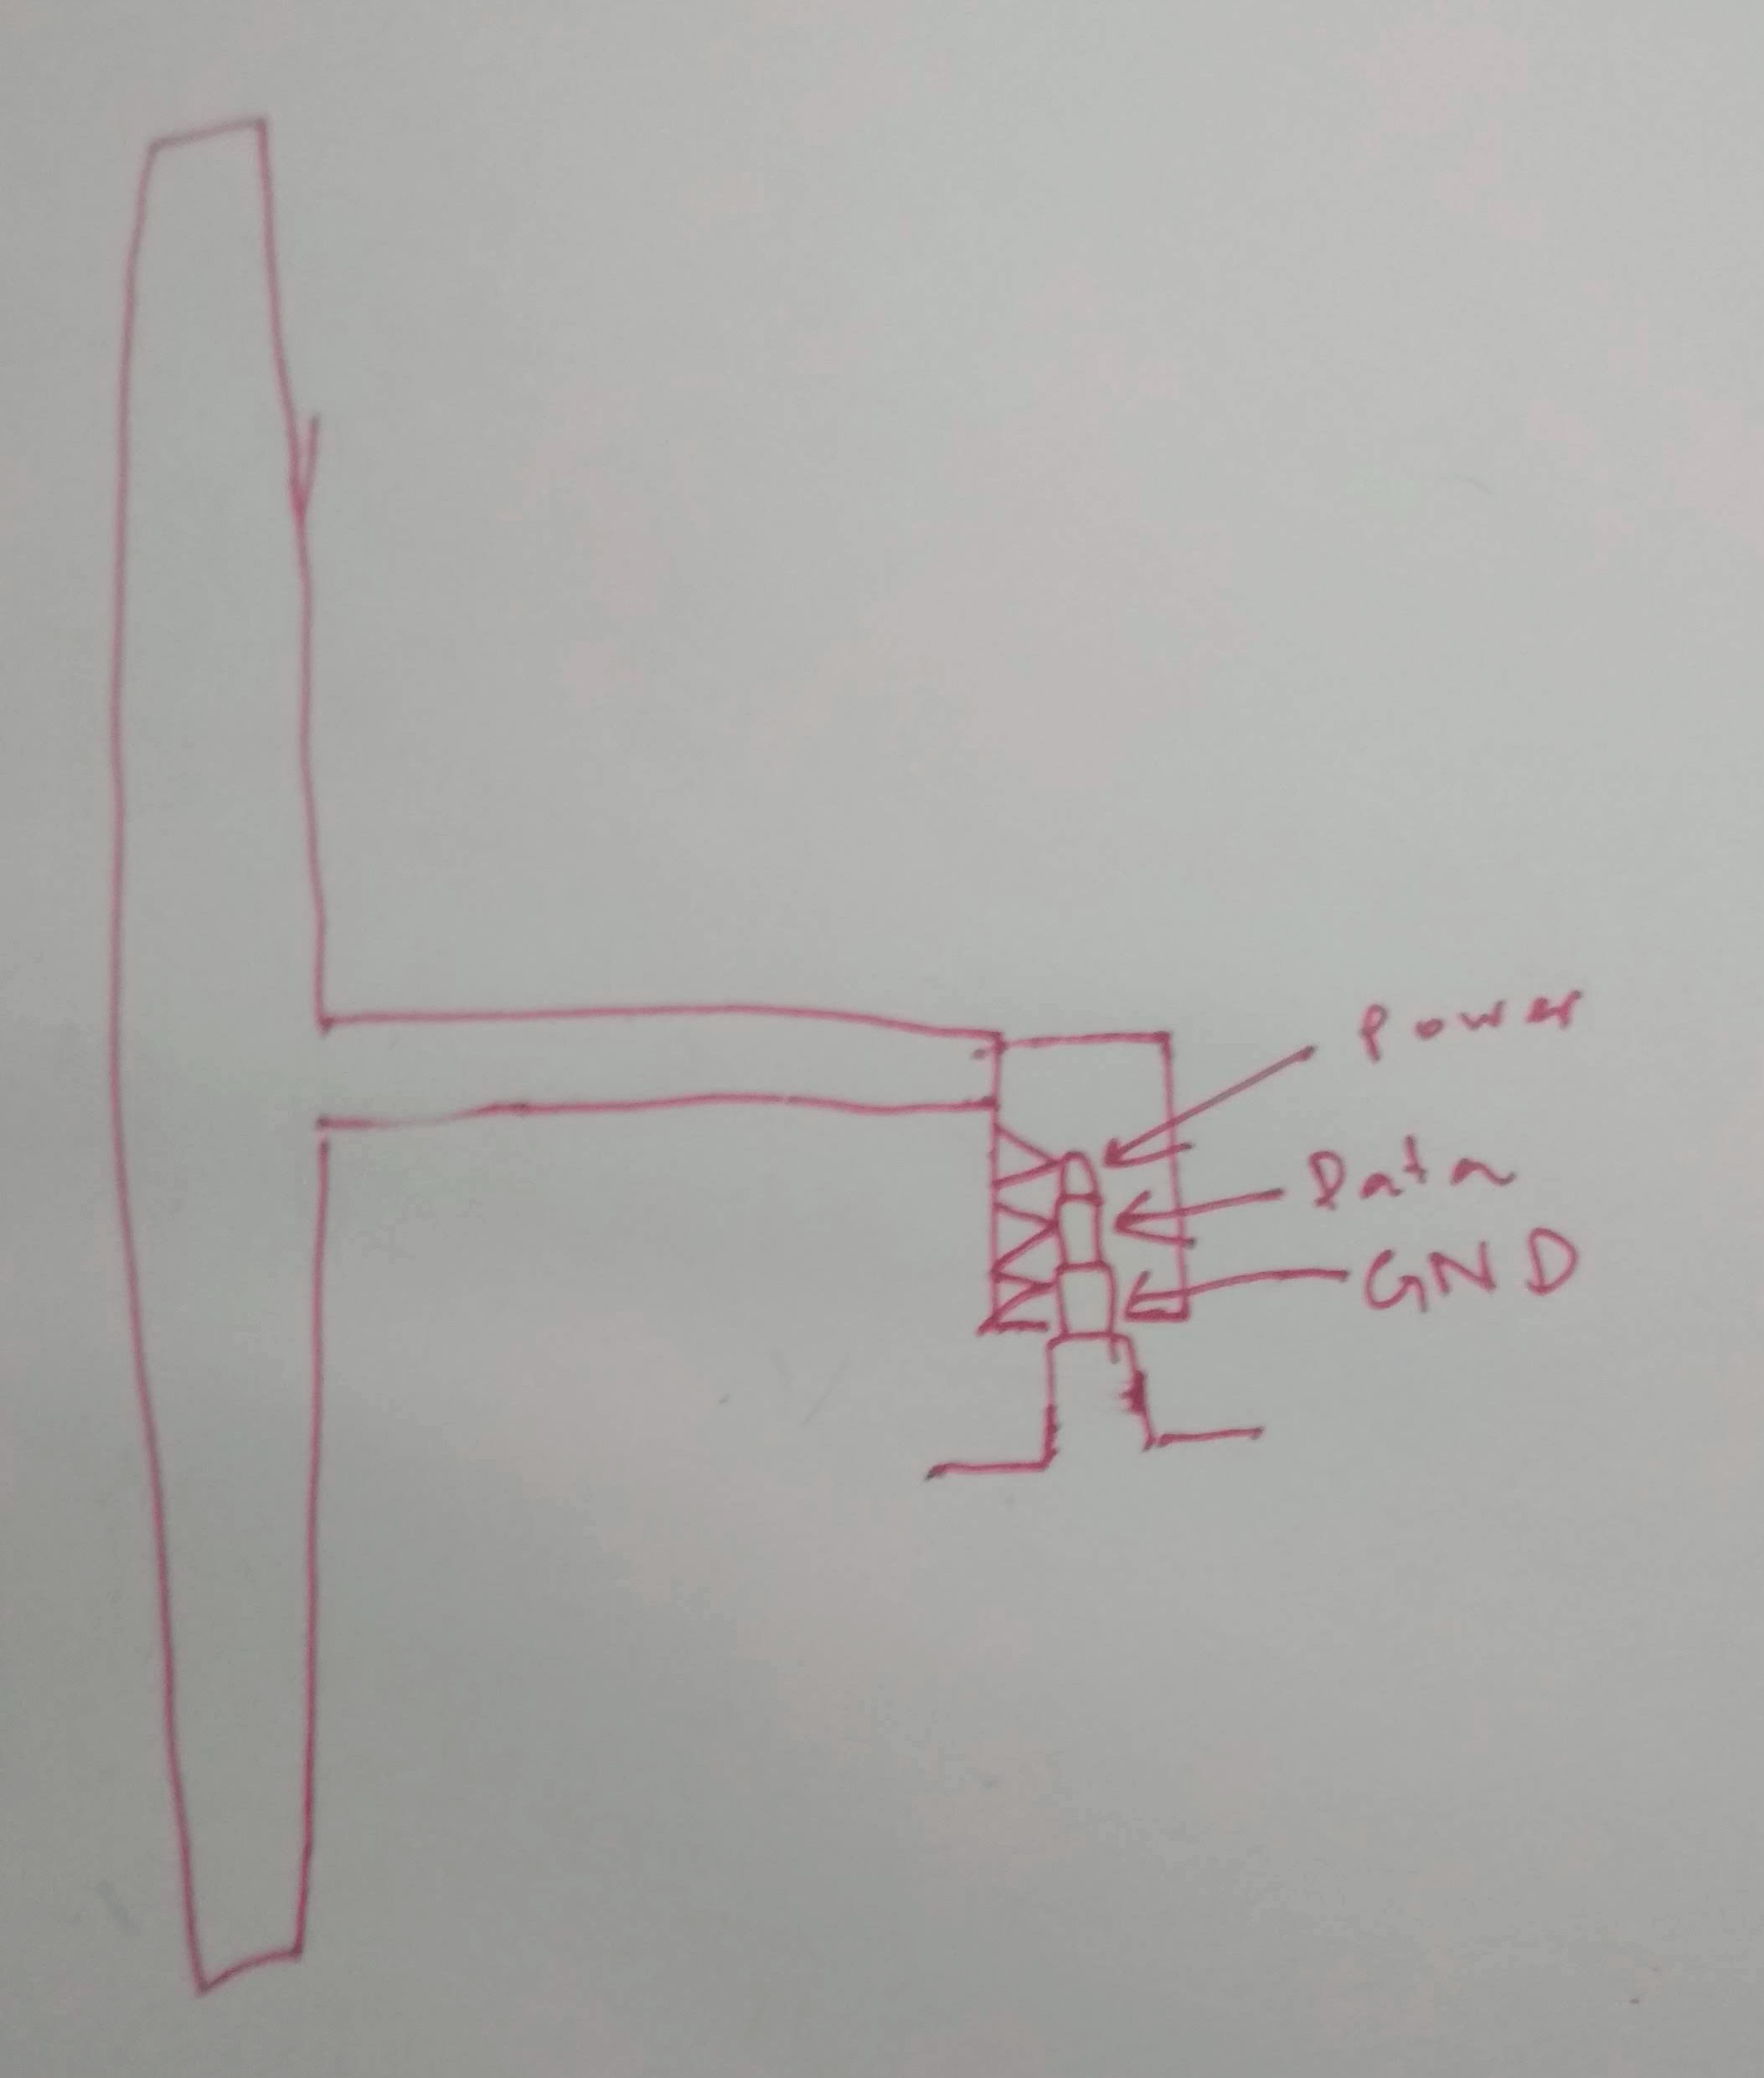 Power
Data
GND